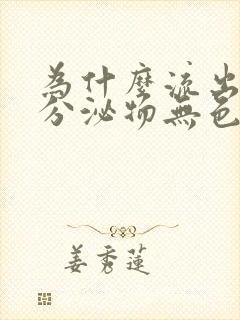 為什麼流出
分泌物無色
姜秀蓮